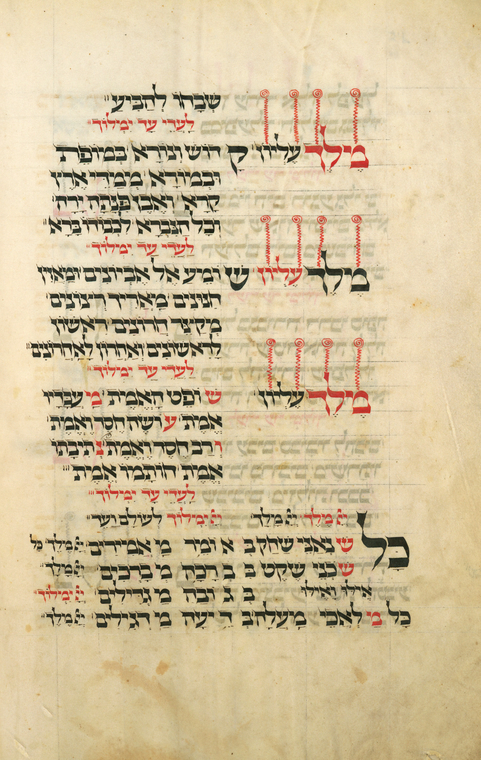 שבחו להביע
לעדי עד ימילוך
מלך עליון קדוש ונורא במופת
ובמורא ממדי ארץ
קרא ואבן פנתה ירה
וכל הנברא לכבודו ברא
לעדי עד ימילוך
מלך עליון שומע אל אביונים ומאזין
חנונים מאריך רצונים
מקצר חרונים ראשון
לראשונים ואחרון לאחרונים
לעדי עד ימילוך
מלך עליון שופט האמת מעבדיו
אמת עושה חסד ואמת
ורב חסד ואמת נתיבתו
אמת חותמו אמת
לעדי עד ימילוך
יי מלך יי מלך יי ימלוך לעולם ועד
כל שנאני שחק באומר מאמירים יי מלך כל
שכני שקט בברכה מברכים יי מלך
אילו ואילו בגובה מגדילים יי ימלוך
כל מלאכי מעלה בדיעה מדגילים יי מלך